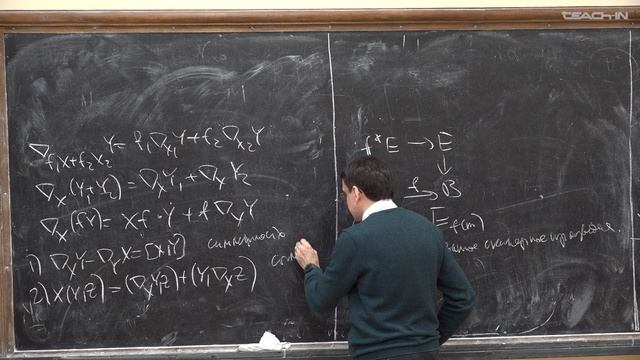 TEACH-IN
∇_{f₁X+f₂X₂} Y = f₁∇_{X₁}Y + f₂∇_{X₂}Y
∇_X(Y₁+Y₂) = ∇_X Y₁ + ∇_X Y₂
∇_X(fY) = Xf·Y + f∇_X Y
1) ∇_X Y − ∇_Y X = [X,Y] симметричность
2) X(Y,Z) = (∇_X Y,Z) + (Y,∇_X Z)
f*E → E
↓
f → B
E_{f(m)}
скалярное